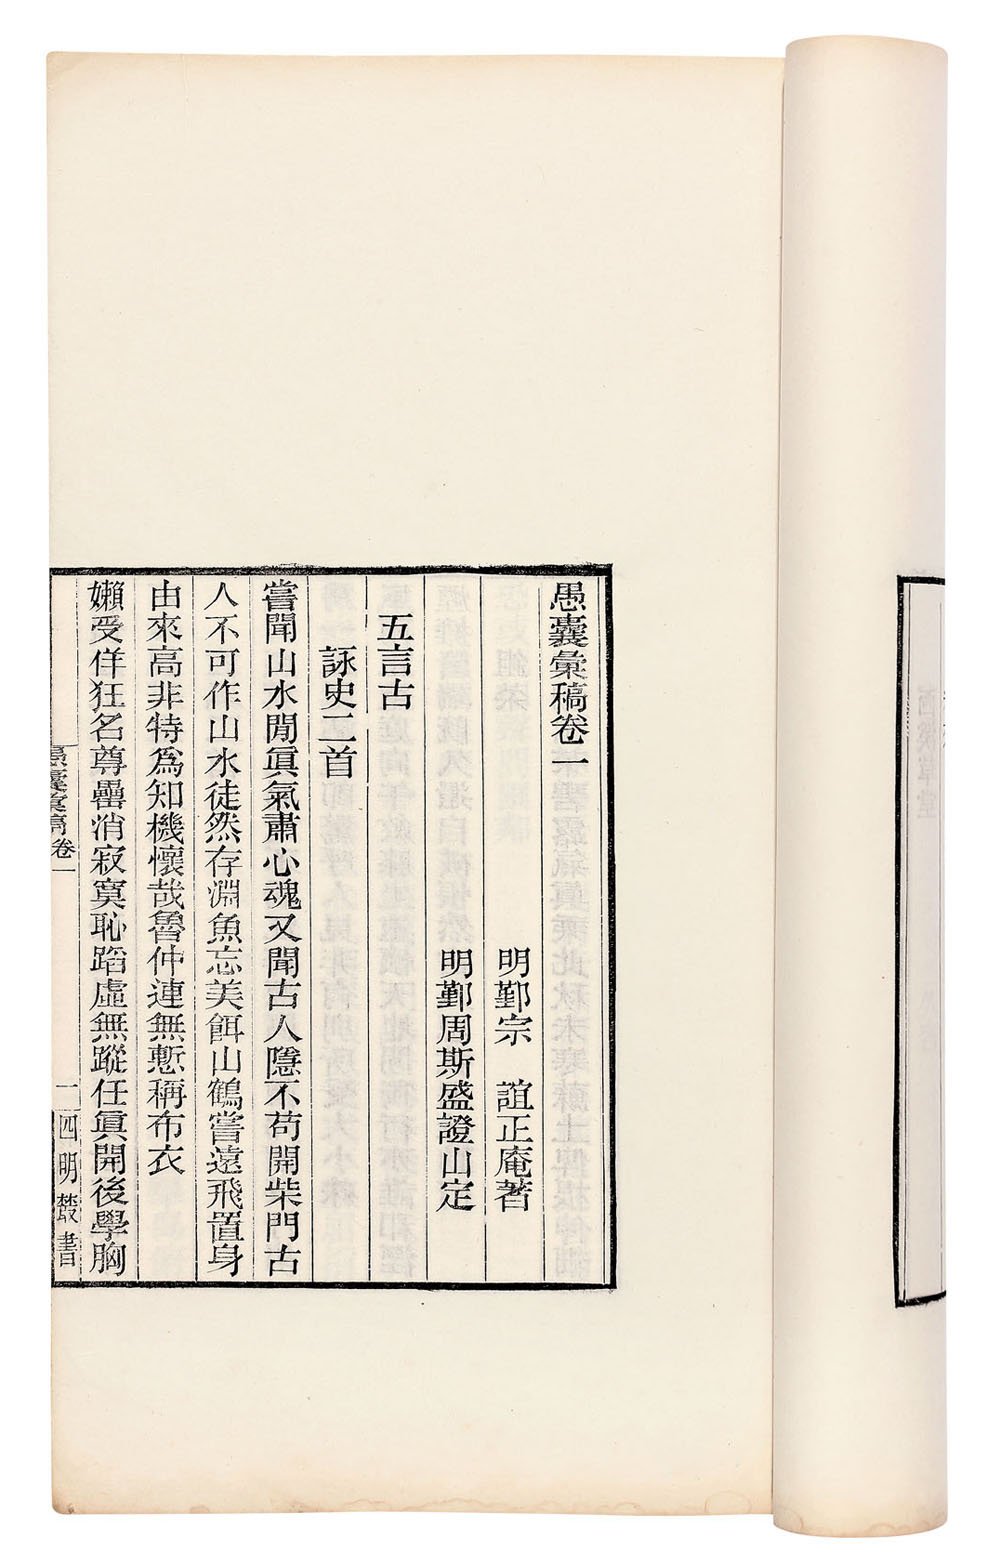 愚囊彙稿卷一
明鄞宗　誼正庵著
明鄞周斯盛證山定
五言古
詠史二首
嘗聞山水閒眞氣肅心魂又聞古人隱不苟開柴門古
人不可作山水徒然存淵魚忘美餌山鶴嘗遠飛置身
由來高非特爲知機懷哉魯仲連無慙稱布衣
嬾受佯狂名尊罍消寂寞恥蹈虛無蹤任眞開後學胸
愚囊彙稿卷一
一
四明叢書